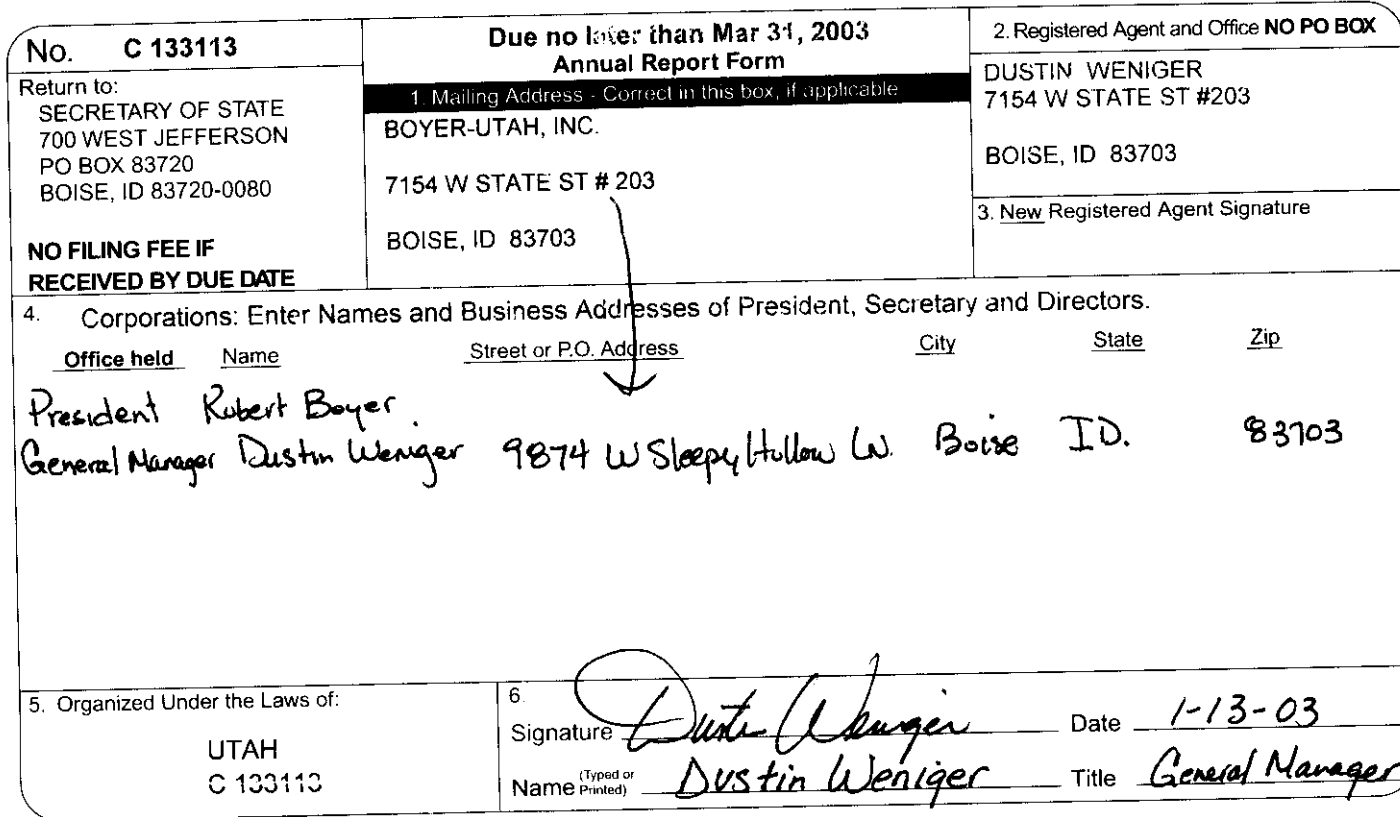 No. C 133113
Return to:
SECRETARY OF STATE
700 WEST JEFFERSON
PO BOX 83720
BOISE, ID 83720-0080
NO FILING FEE IF
RECEIVED BY DUE DATE
Due no later than Mar 31, 2003
Annual Report Form
1. Mailing Address - Correct in this box, if applicable
BOYER-UTAH, INC.
7154 W STATE ST # 203
BOISE, ID 83703
2. Registered Agent and Office NO PO BOX
DUSTIN WENIGER
7154 W STATE ST #203
BOISE, ID 83703
3. New Registered Agent Signature
4. Corporations: Enter Names and Business Addresses of President, Secretary and Directors.
Office held Name Street or P.O. Address City State Zip
President Robert Boyer
General Manager Dustin Weniger 9874 W Sleepy Hollow LN. Boise ID. 83703
5. Organized Under the Laws of:
UTAH
C 133113
6.
Signature Dustin Weniger Date 1-13-03
Name (Typed or Printed) Dustin Weniger Title General Manager